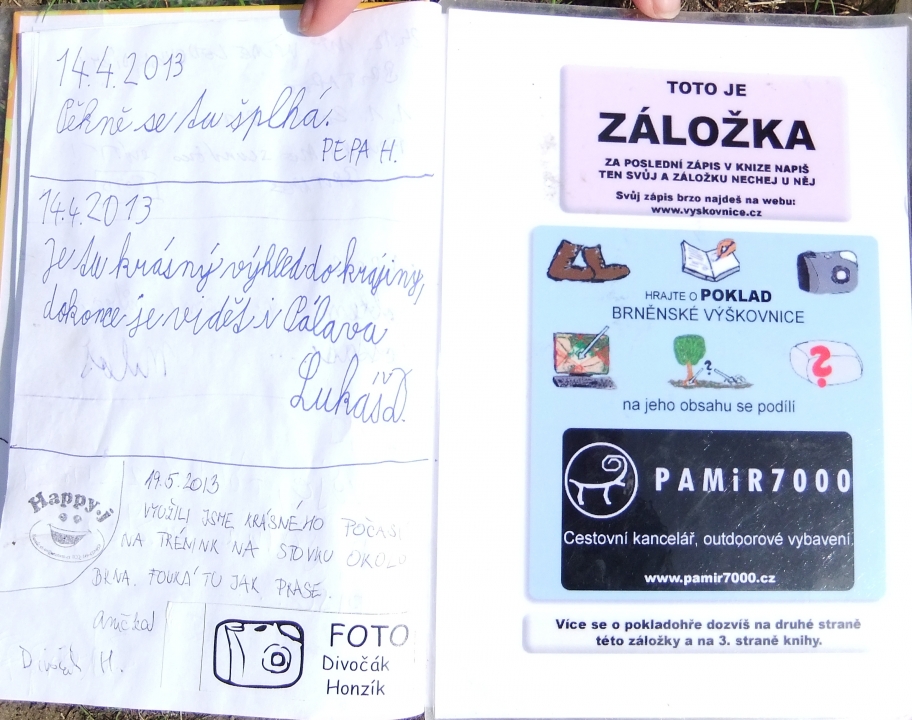 14.4.2013
Pěkně se tu šplhá.
PEPA H.
14.4.2013
Je tu krásný výhled do krajiny,
dokonce je vidět i Pálava
Lukáš D.
Happy.j
19.5.2013
VYUŽILI JSME KRÁSNÉHO POČASÍ
NA TRÉNINK NA STOVKU OKOLO
BRNA. FOUKÁ TU JAK PRASE.
Anička
Divočák H.
FOTO
Divočák
Honzík
TOTO JE
ZÁLOŽKA
ZA POSLEDNÍ ZÁPIS V KNIZE NAPIŠ
TEN SVŮJ A ZÁLOŽKU NECHEJ U NĚJ
Svůj zápis brzo najdeš na webu:
www.vyskovnice.cz
HRAJTE O POKLAD
BRNĚNSKÉ VÝŠKOVNICE
?
?
na jeho obsahu se podílí
PAMiR7000
Cestovní kancelář, outdoorové vybavení
www.pamir7000.cz
Více se o pokladohře dozvíš na druhé straně
této záložky a na 3. straně knihy.